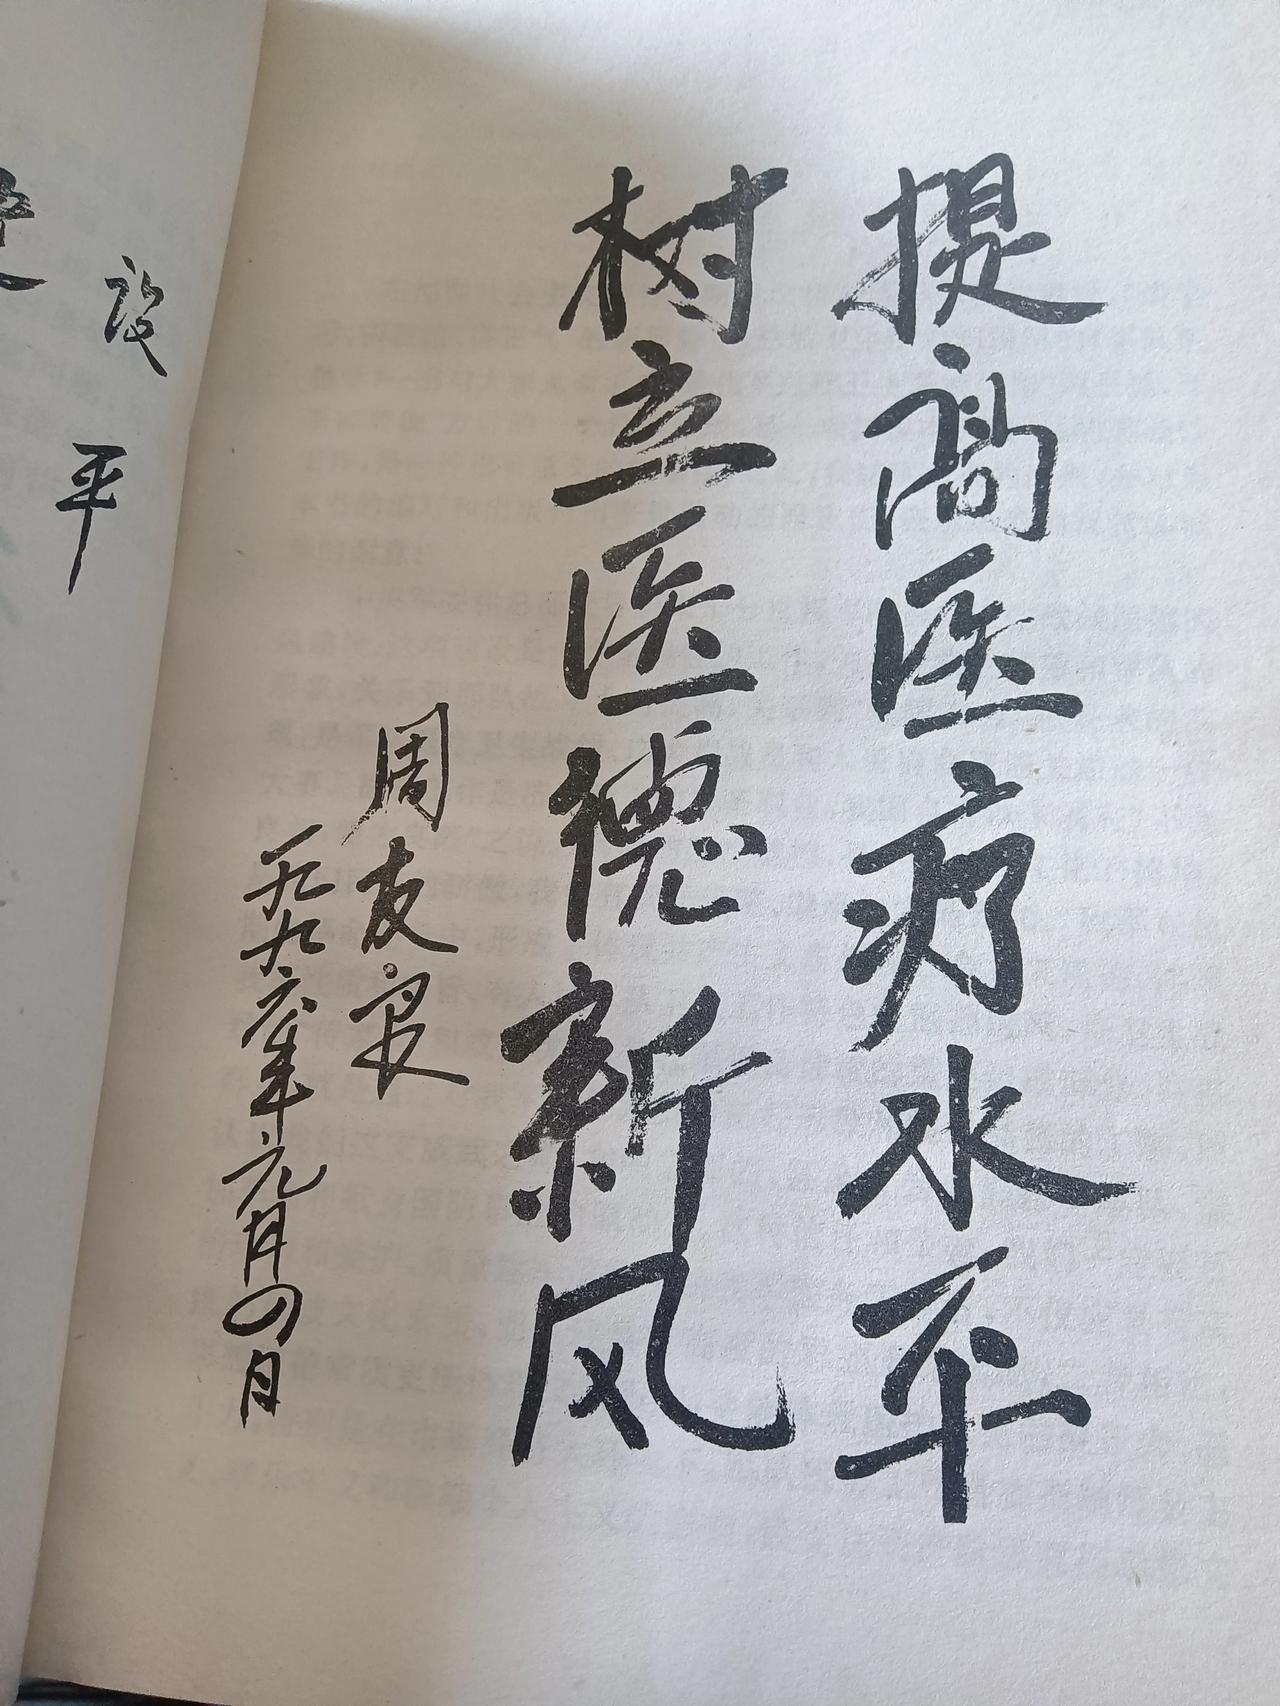 提高医疗水平
树立医德新风
周友良
一九九六年元月四日
设
平